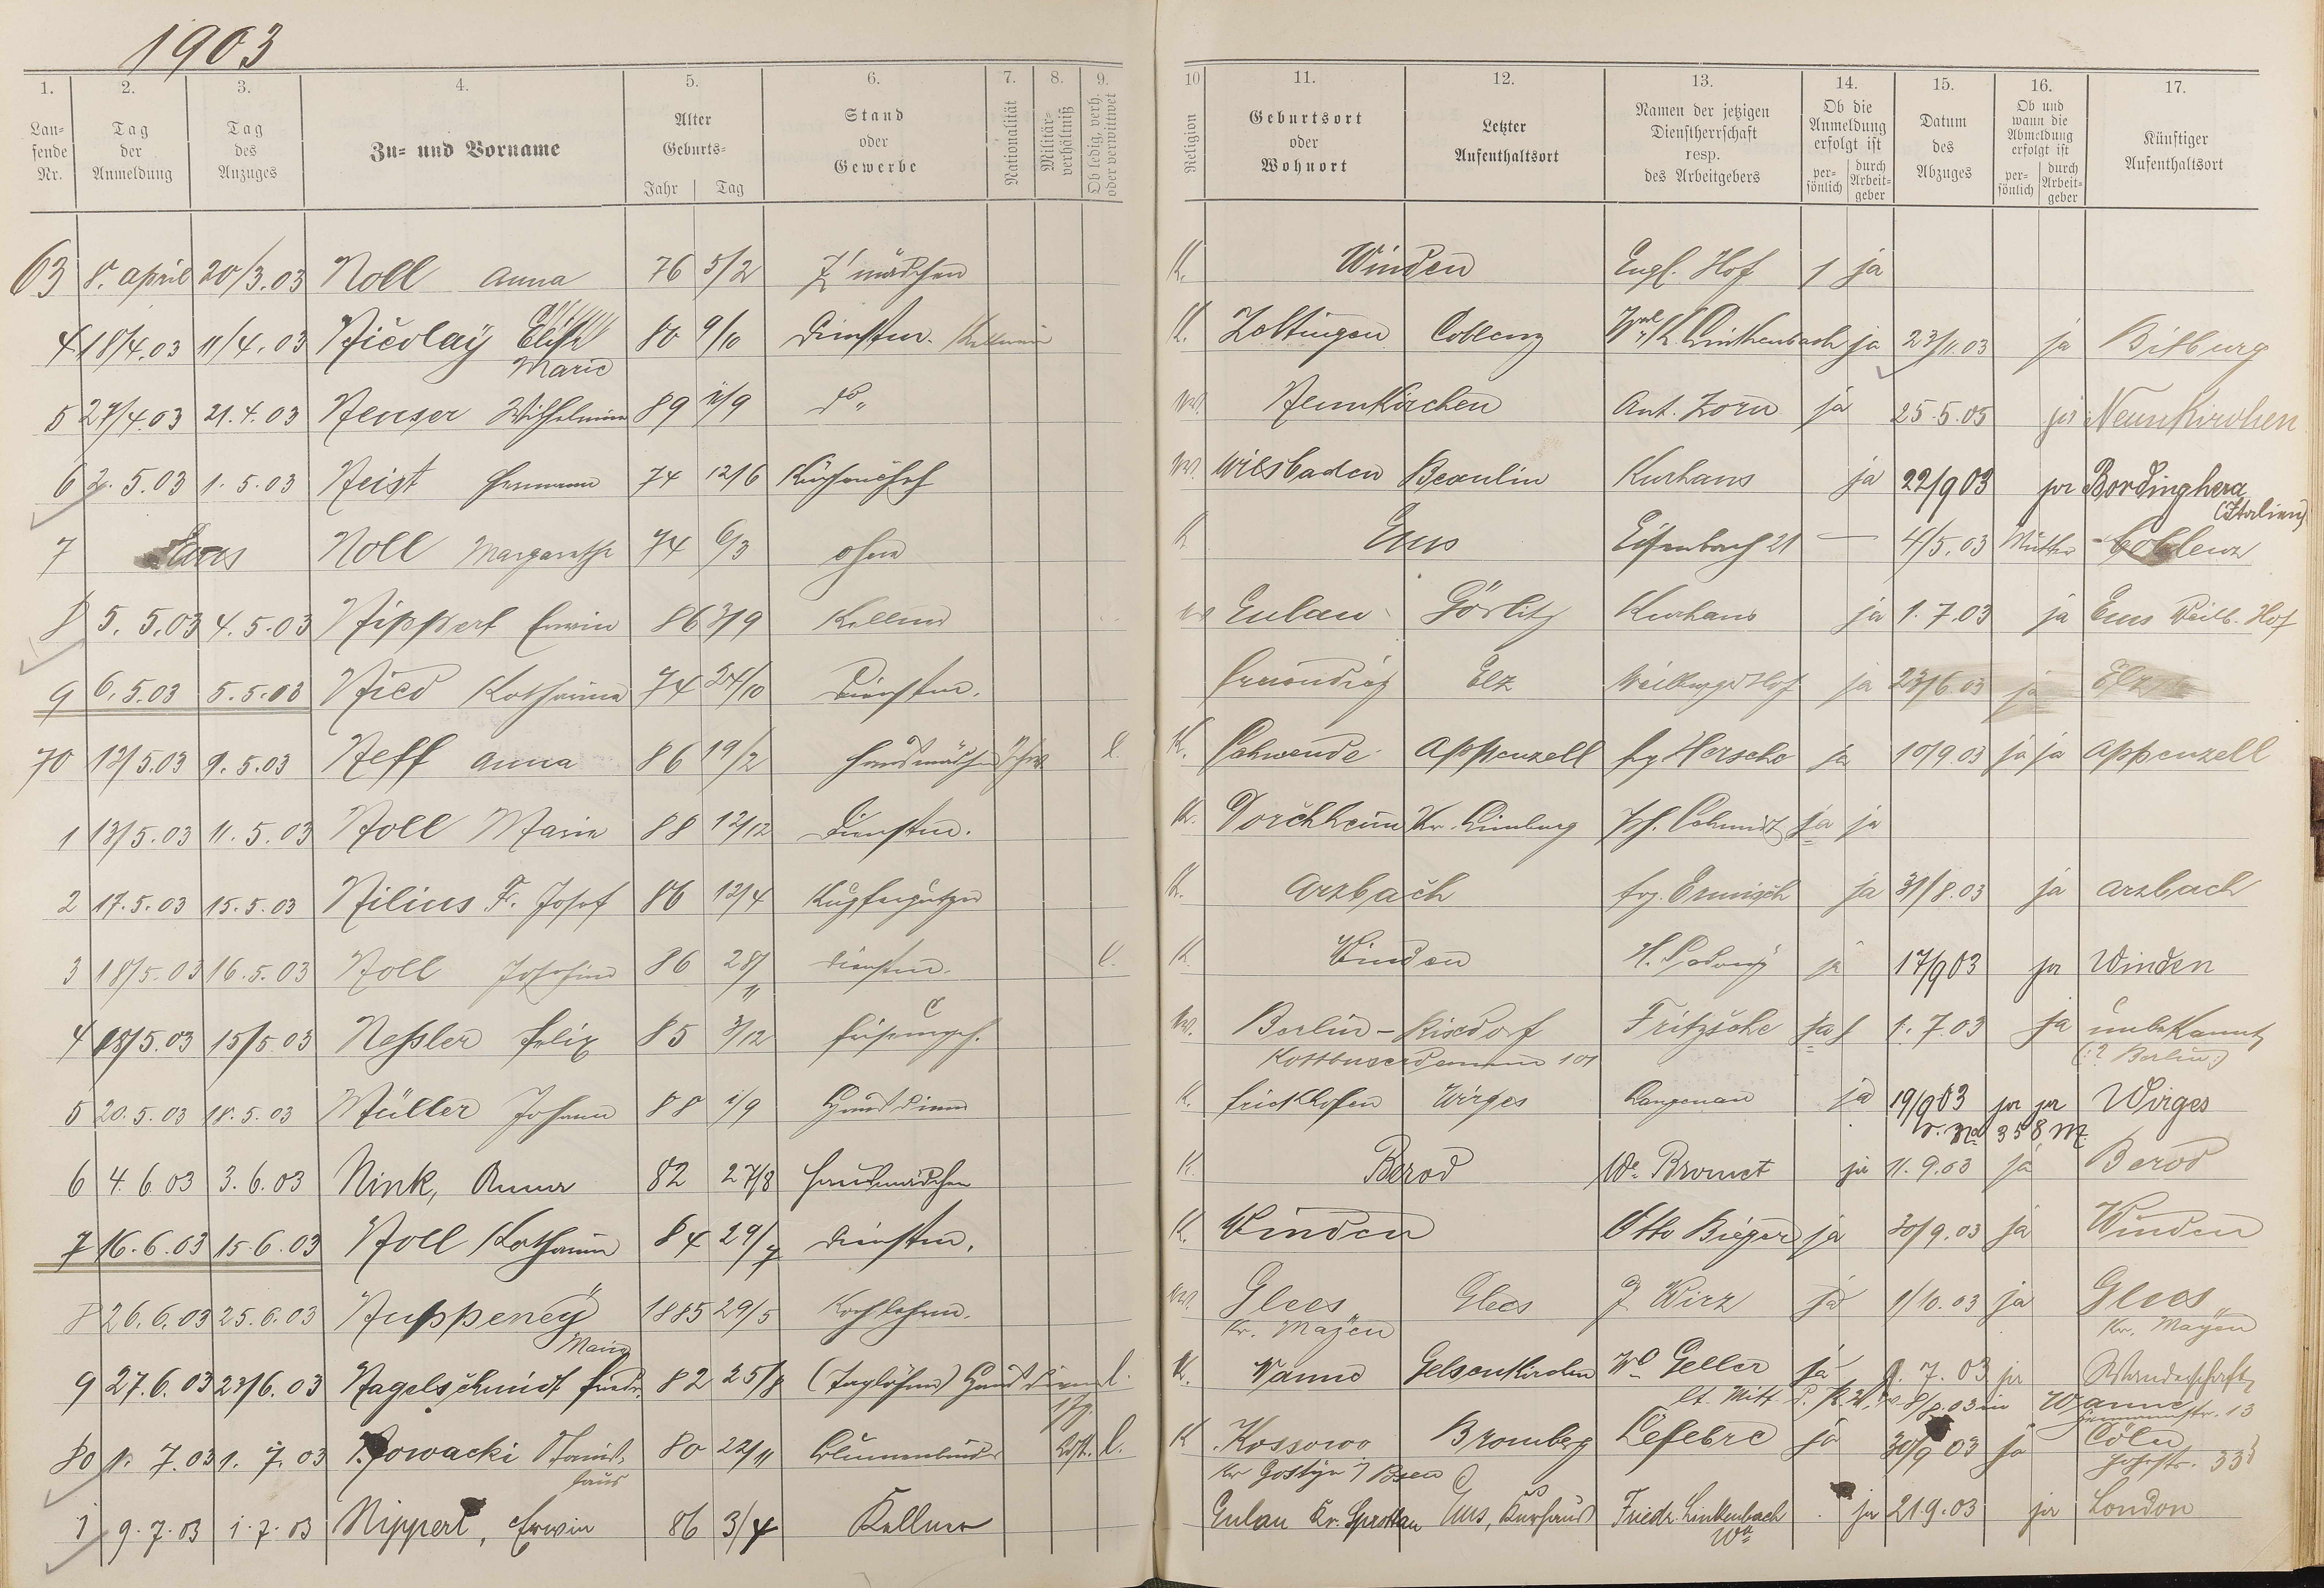 1903
1. 2. 3. 4. 5. 6. 7. 8. 9. 10 11. 12. 13. 14. 15. 16. 17.
Lau- fende Nr.
Tag der Anmeldung
Tag des Anzuges
Zu- und Vorname
Alter Geburts- Jahr Tag
Stand oder Gewerbe
Nationalität
Militär- verhältniß
Ob ledig, verh. oder verwittwet
Religion
Geburtsort oder Wohnort
Letzter Aufenthaltsort
Namen der jetzigen Dienstherrschaft resp. des Arbeitgebers
Ob die Anmeldung erfolgt ist per- sönlich durch Arbeit- geber
Datum des Abzuges
Ob und wann die Abmeldung erfolgt ist per- sönlich durch Arbeit- geber
Künftiger Aufenthaltsort
63 8. April 20/3.03 Noll Anna 76 5/2 Z'mädchen K. Winden Engl. Hof 1 ja
4 18/4.03 11/4.03 Nicolaÿ 80 9/10 Dienstm. Kellnerin K. Zeltingen Coblenz Linkenbach ja 23/11.03 ja Bitburg
Marie
5 27/4.03 21.4.03 Neuser Wilhelmine 89 1/9 do Neunkirchen Ant. Zorn ja 25.5.05 ja Neunkirchen
6 2.5.03 1.5.03 Neist Hermann 74 12/6 Küchenchef Wiesbaden Beaulin Kurhaus ja 22/9 03 ja Bordinghera
(Italien)
7 Ems Noll Margarethe 74 6/3 ohne K Ems Eisenbach 21 — 4/5.03 Mutter Coblenz
8 5.5.03 4.5.03 Nippert Erwin 86 3/9 Kellner Eulau Görlitz Kurhaus ja 1.7.03 ja Ems Weilb. Hof
9 6.5.03 5.5.03 Nied Katharina 74 24/10 Dienstm. Elz Weilburger Hof ja 23/6.03 ja Elz
70 12/5.03 9.5.03 Neff Anna 86 19/2 Hausmädchen Schw. l K. Schwende Appenzell Frz Hersche ja 10/9.03 ja ja Appenzell
1 13/5.03 11.5.03 Noll Maria 88 12/12 Dienstm. K. Dorchheim Kr. Limburg Jos. Schmidt ja ja
2 17.5.03 15.5.03 Nilius F. Josef 86 12/4 Kupferputzer K. Arzbach Frz. Ermisch ja 31/8.03 ja Arzbach
3 18/5.03 16.5.03 Noll Josefine 86 28/11 Dienstm. l. K Winden ja 17/9 03 ja Winden
4 18/5.03 15/5.03 Neßler Felix 85 3/12 Friseurgeh. Berlin - Rixdorf Fritzsche ja 1.7.03 ja unbekannt
Kottbuserdamm 101 (:? Berlin:)
5 20.5.03 18.5.03 Müller Johann 88 1/9 Hausdiener K. Frickhofen Wirges Langenau ja 19/9 03 ja ja Wirges
v. No 358 M.
6 4.6.03 3.6.03 Nink, Anna 82 27/8 Hausmädchen K. Berod We Bromet ja 11.9.03 ja Berod
7 16.6.03 15.6.03 Noll Katharina 84 29/7 Dienstm. K. Winden Otto Bieger ja 30/9.03 ja Winden
8 26.6.03 25.6.03 Nuppeneÿ 1885 29/5 Kochlehrn. Glees Glees J Wirz ja 1/10.03 ja Glees
Maria Kr. Mayen Kr. Mayen
9 27.6.03 23/6.03 Nagelschmidt Friedr. 82 25/8 (Taglöhner) Hausdiener l. K. Wanne Gelsenkirchen Wo Geller ja 1.7.03 ja Wanderschaft
lt. Mitt. 8/8.03 in Wanne
80 1.7.03 1.7.03 Nowacki Stanis- 80 22/11 Blumenbinder l. K Kossowo Bromberg Lefebre ja 30/9 03 ja Cöln
laus Kr Gostyn Posen
1 9.7.03 1.7.03 Nippert, Erwin 86 3/4 Kellner Eulau Kr. Sprottau Ems, Kurhaus Friedr. Linkenbach ja 21.9.03 ja London
Wo